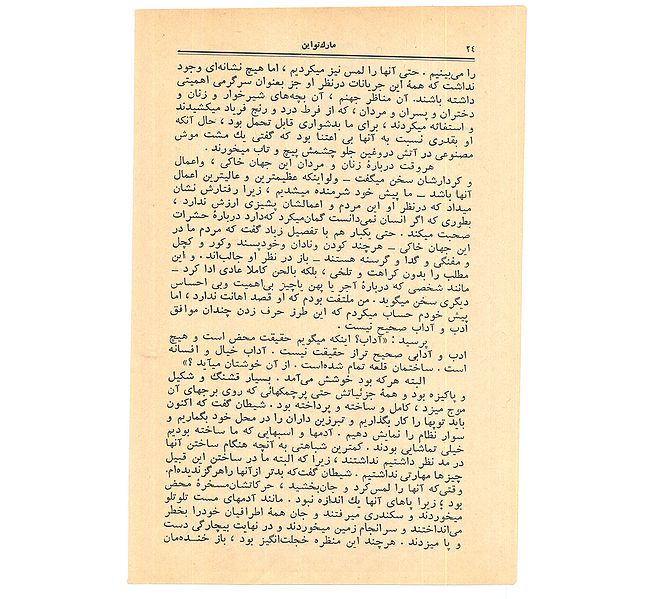 ۲٤
مارك‌تواین
را می‌بینیم . حتی آنها را لمس نیز میکردیم ، اما هیچ نشانه‌ای وجود
نداشت که همهٔ این جریانات درنظر او جز بعنوان سرگرمی اهمیتی
داشته باشند. آن مناظر جهنم ، آن بچه‌های شیرخوار و زنان و
دختران و پسران و مردان ، که از فرط درد و رنج فریاد میکشیدند
و استغاثه میکردند ، برای ما بدشواری قابل تحمل بود ، حال آنکه
او بقدری نسبت به آنها بی اعتنا بود که گفتی یك مشت موش
مصنوعی در آتش دروغین جلو چشمش پیچ و تاب میخورند .
هروقت دربارهٔ زنان و مردان این جهان خاکی ، واعمال
و کردارشان سخن میگفت ــ ولواینکه عظیمترین و عالیترین اعمال
آنها باشد ــ ما پیش خود شرمنده میشدیم ، زیرا رفتارش نشان
میداد که درنظر او این مردم و اعمالشان پشیزی ارزش ندارد ،
بطوری که اگر انسان نمی‌دانست گمان‌میکرد که‌دارد دربارهٔ حشرات
صحبت میکند . حتی یکبار هم با تفصیل زیاد گفت که مردم ما در
این جهان خاکی ــ هرچند کودن ونادان وخودپسند وکور و کچل
و مفنگی و گدا و گرسنه هستند ــ باز در نظر او جالب‌اند . و این
مطلب را بدون کراهت و تلخی ، بلکه بالحن کاملا عادی ادا کرد ــ
مانند شخصی که دربارهٔ آجر یا پهن یاچیز بی‌اهمیت وبی احساس
دیگری سخن میگوید . من ملتفت بودم که او قصد اهانت ندارد ، اما
پیش خودم حساب میکردم که این طرز حرف زدن چندان موافق
ادب و آداب صحیح نیست .
پرسید : «آداب؟ اینکه میگویم حقیقت محض است و هیچ
ادب و آدابی صحیح تراز حقیقت نیست . آداب خیال و افسانه
است . ساختمان قلعه تمام شده‌است . از آن خوشتان میآید ؟»
البته هرکه بود خوشش می‌آمد . بسیار قشنگ و شکیل
و پاکیزه بود و همهٔ جزئیاتش حتی پرچمکهائی که روی برجهای آن
موج میزد ، کامل و ساخته و پرداخته بود . شیطان گفت که اکنون
باید توپها را کار بگذاریم و تبرزین داران را در محل خود بگماریم و
سوار نظام را نمایش دهیم . آدمها و اسبهایی که ما ساخته بودیم
خیلی تماشایی بودند . کمترین شباهتی به آنچه هنگام ساختن آنها
در مد نظر داشتیم نداشتند ، زیرا که البته ما در ساختن این قبیل
چیزها مهارتی نداشتیم . شیطان گفت‌که بدتر ازآنها راهرگزندیده‌ام.
وقتی‌که آنها را لمس‌کرد و جان‌بخشید ، حرکاتشان‌مسخرهٔ محض
بود ؛ زیرا پاهای آنها یك اندازه نبود . مانند آدمهای مست تلوتلو
میخوردند و سکندری میرفتند و جان همهٔ اطرافیان خودرا بخطر
می‌انداختند و سرانجام زمین میخوردند و در نهایت بیچارگی دست
و پا میزدند . هرچند این منظره خجلت‌انگیز بود ، باز خنده‌مان